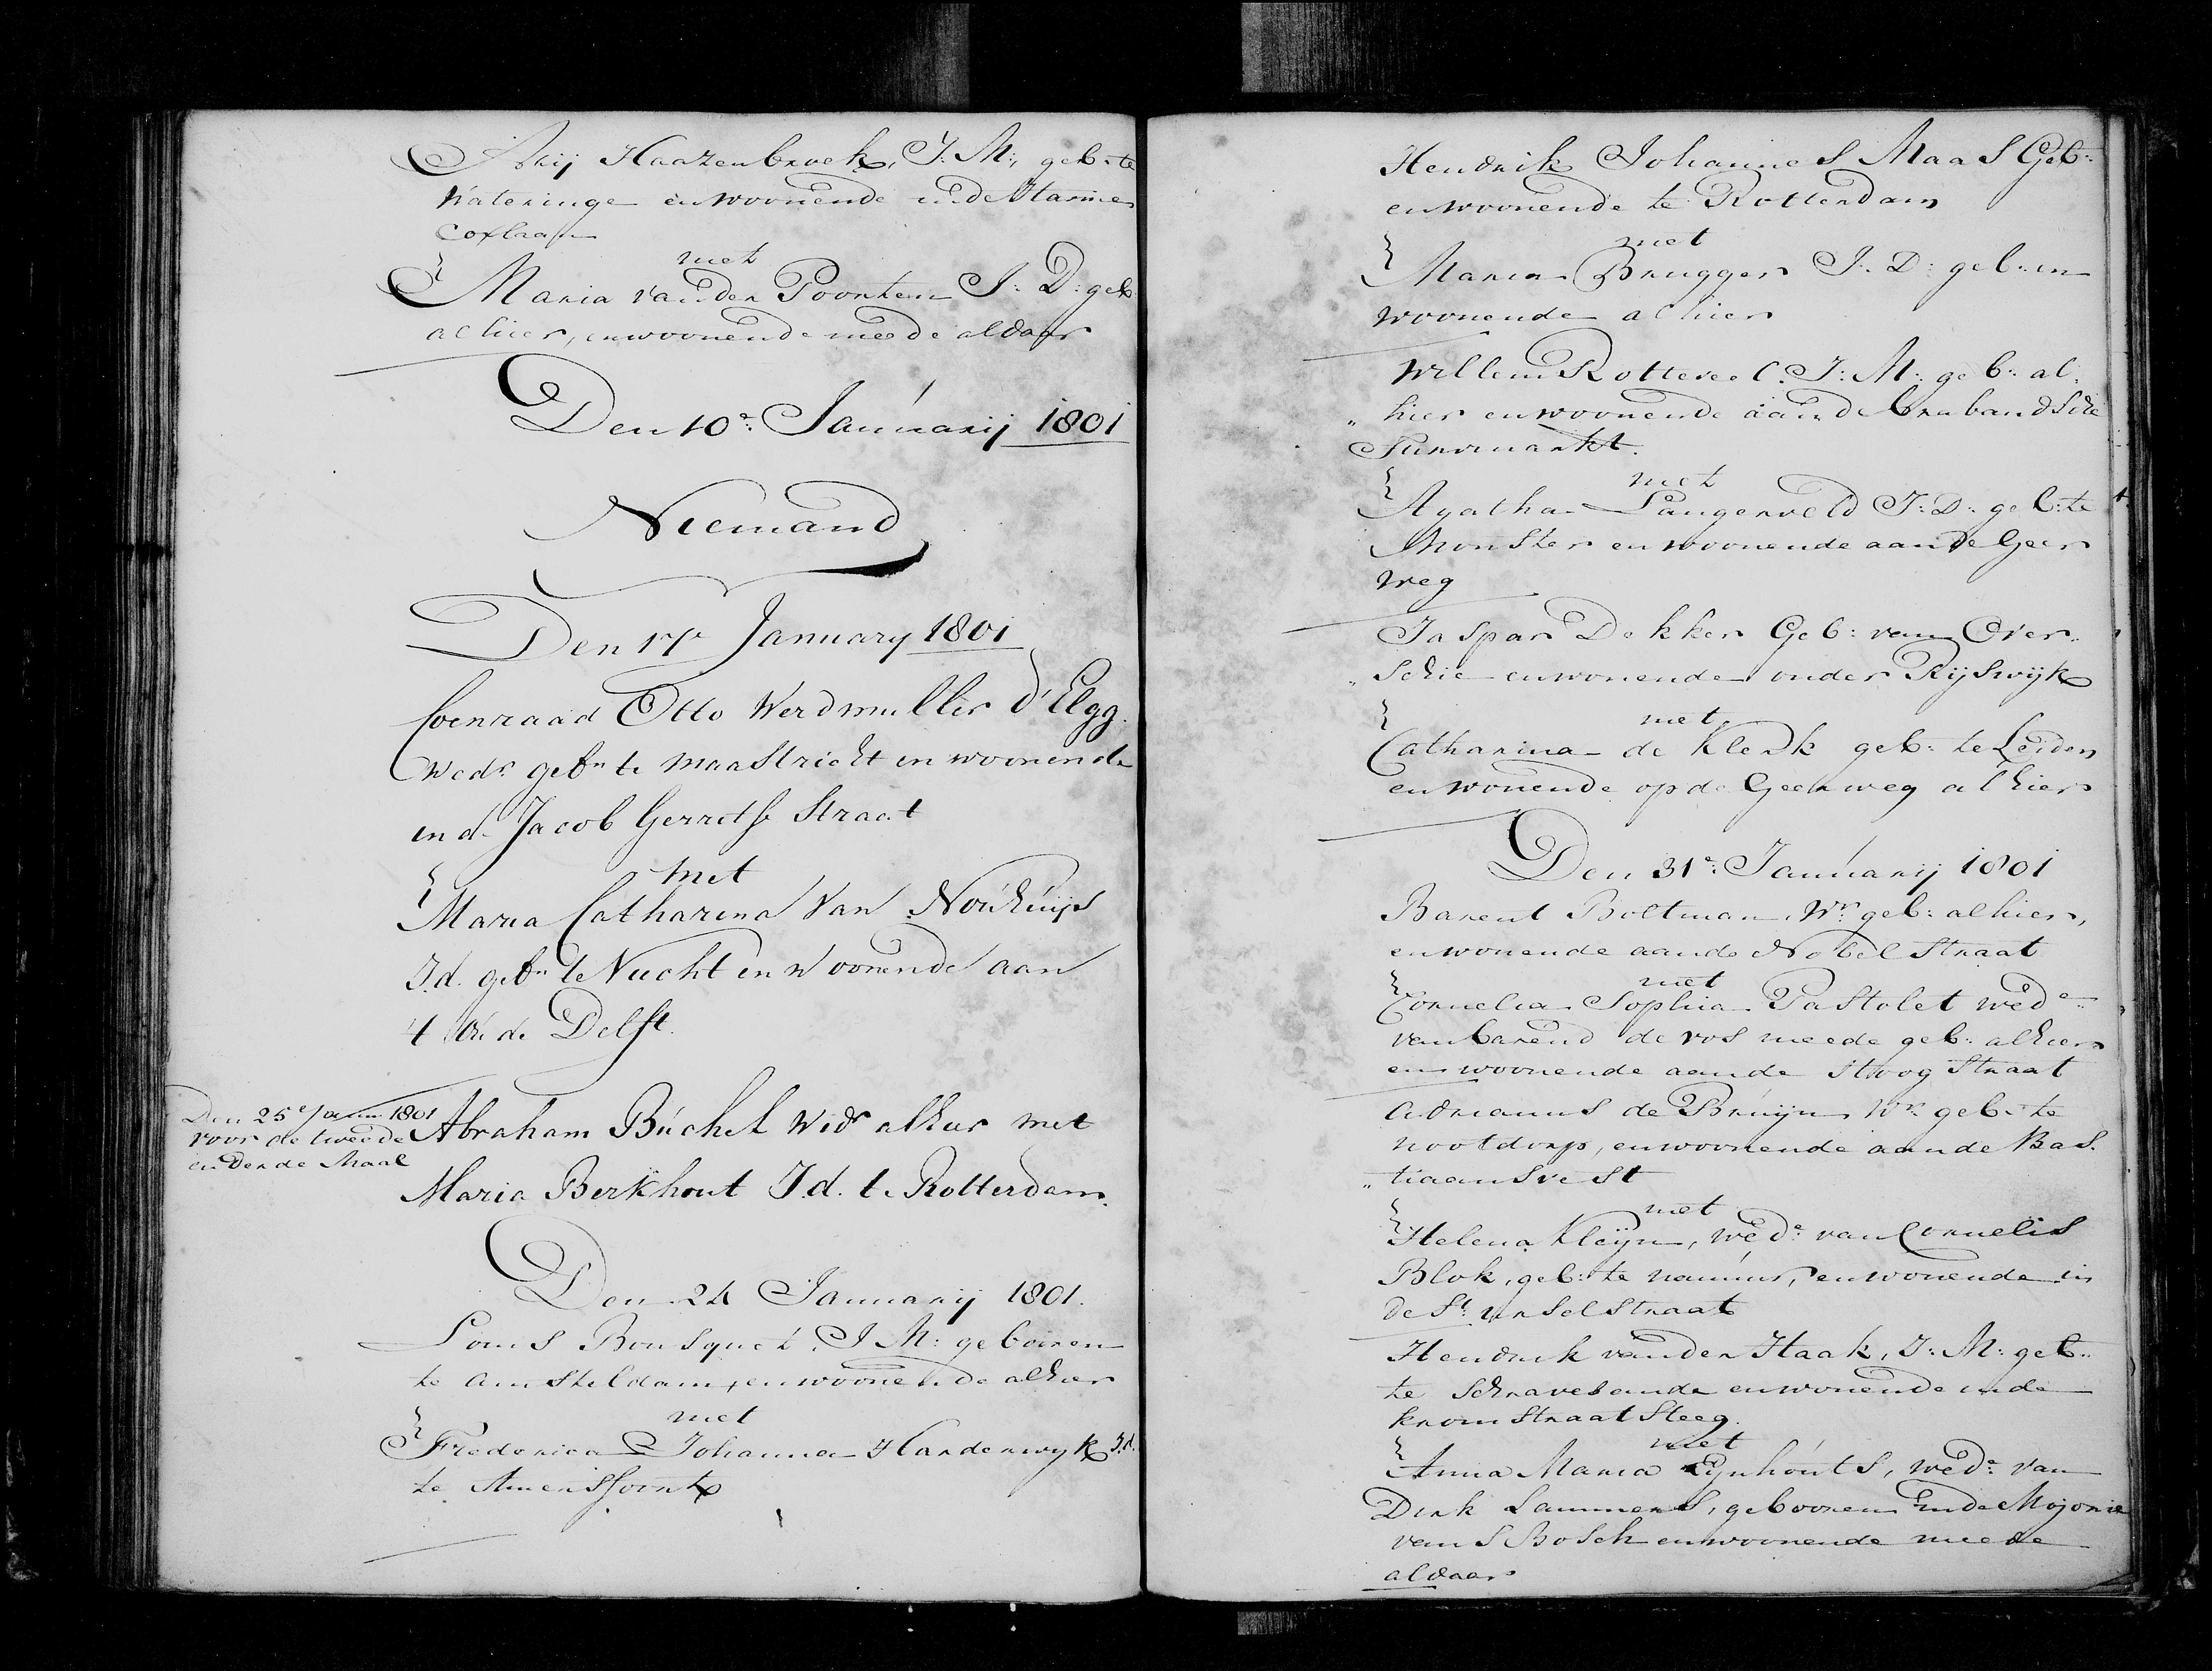 Arij Haazenbroek, J: M:, geb: te
Wateringe en woonende in de Harme
Coxlaan
met
Maria van der Poorten J: D: geb:
alhier, en woonende meede aldaar
Den 10e: Januarij 1801
Niemand
Den 17e January 1801
Coenraad Otto Werdmuller d'Elgg
Wedr gebn te Maastricht en woonende
in de Jacob Gerritse Straat
met
Maria Catharina Van Nouhuijs
J.d. gebn te Vucht en Woonende aan
t de Delft.
Den 25e Janu 1801
voor de tweede
en derde Maal
Abraham Büchel Widr alhier met
Maria Berkhout J.d. te Rotterdam.
Den 24 Januarij 1801.
Louis Bousquet, J M: gebooren
te Amsteldam, en woonende alhier
met
Frederica Johanna Harderwyk J.d.
te Amersfoort
Hendrik Johannes Maas Geb:
en woonende te Rotterdam
met
Maria Brugger J: D: geb: en
woonende alhier
Willem Rottevee l. J: M: geb: al:
„ hier en woonende aan de brabandsche
Turvmarkt.
met
Agatha Langerveld J: D: geb: te
Monster en woonende aan de Geer
weg
Jaspar Dekker Geb: van Over„
„ schie en wonende onder Rijswijk
met
Catharina de Klerk geb: te Leiden
en wonende op de Geerweg alhier
Den 31e: Januarij 1801
Barent Boltman Wr: geb: alhier,
en wonende aan de Nobelstraat
met
Cornelia Sophia Pastolet wede
van barend de vos meede geb: alhier
en woonende aan de Hoogstraat
Adrianus de Bruijn Wr: geb: te
nootdorp, en woonende aan de Bas„
„ tiaansvest
met
Helena Kleijn, wede: van Cornelis
Blok, geb: te namur, en wonende in
de St: urselstraat
Hendrik van der Haak, J: M: geb:
te Schravesande en wonende in de
kromstraatsteeg.
met
Anna Maria Eijnhouts, wede: van
Dirk Lammers, gebooren in de Meijorie
van S Bosch en woonende meede
aldaar